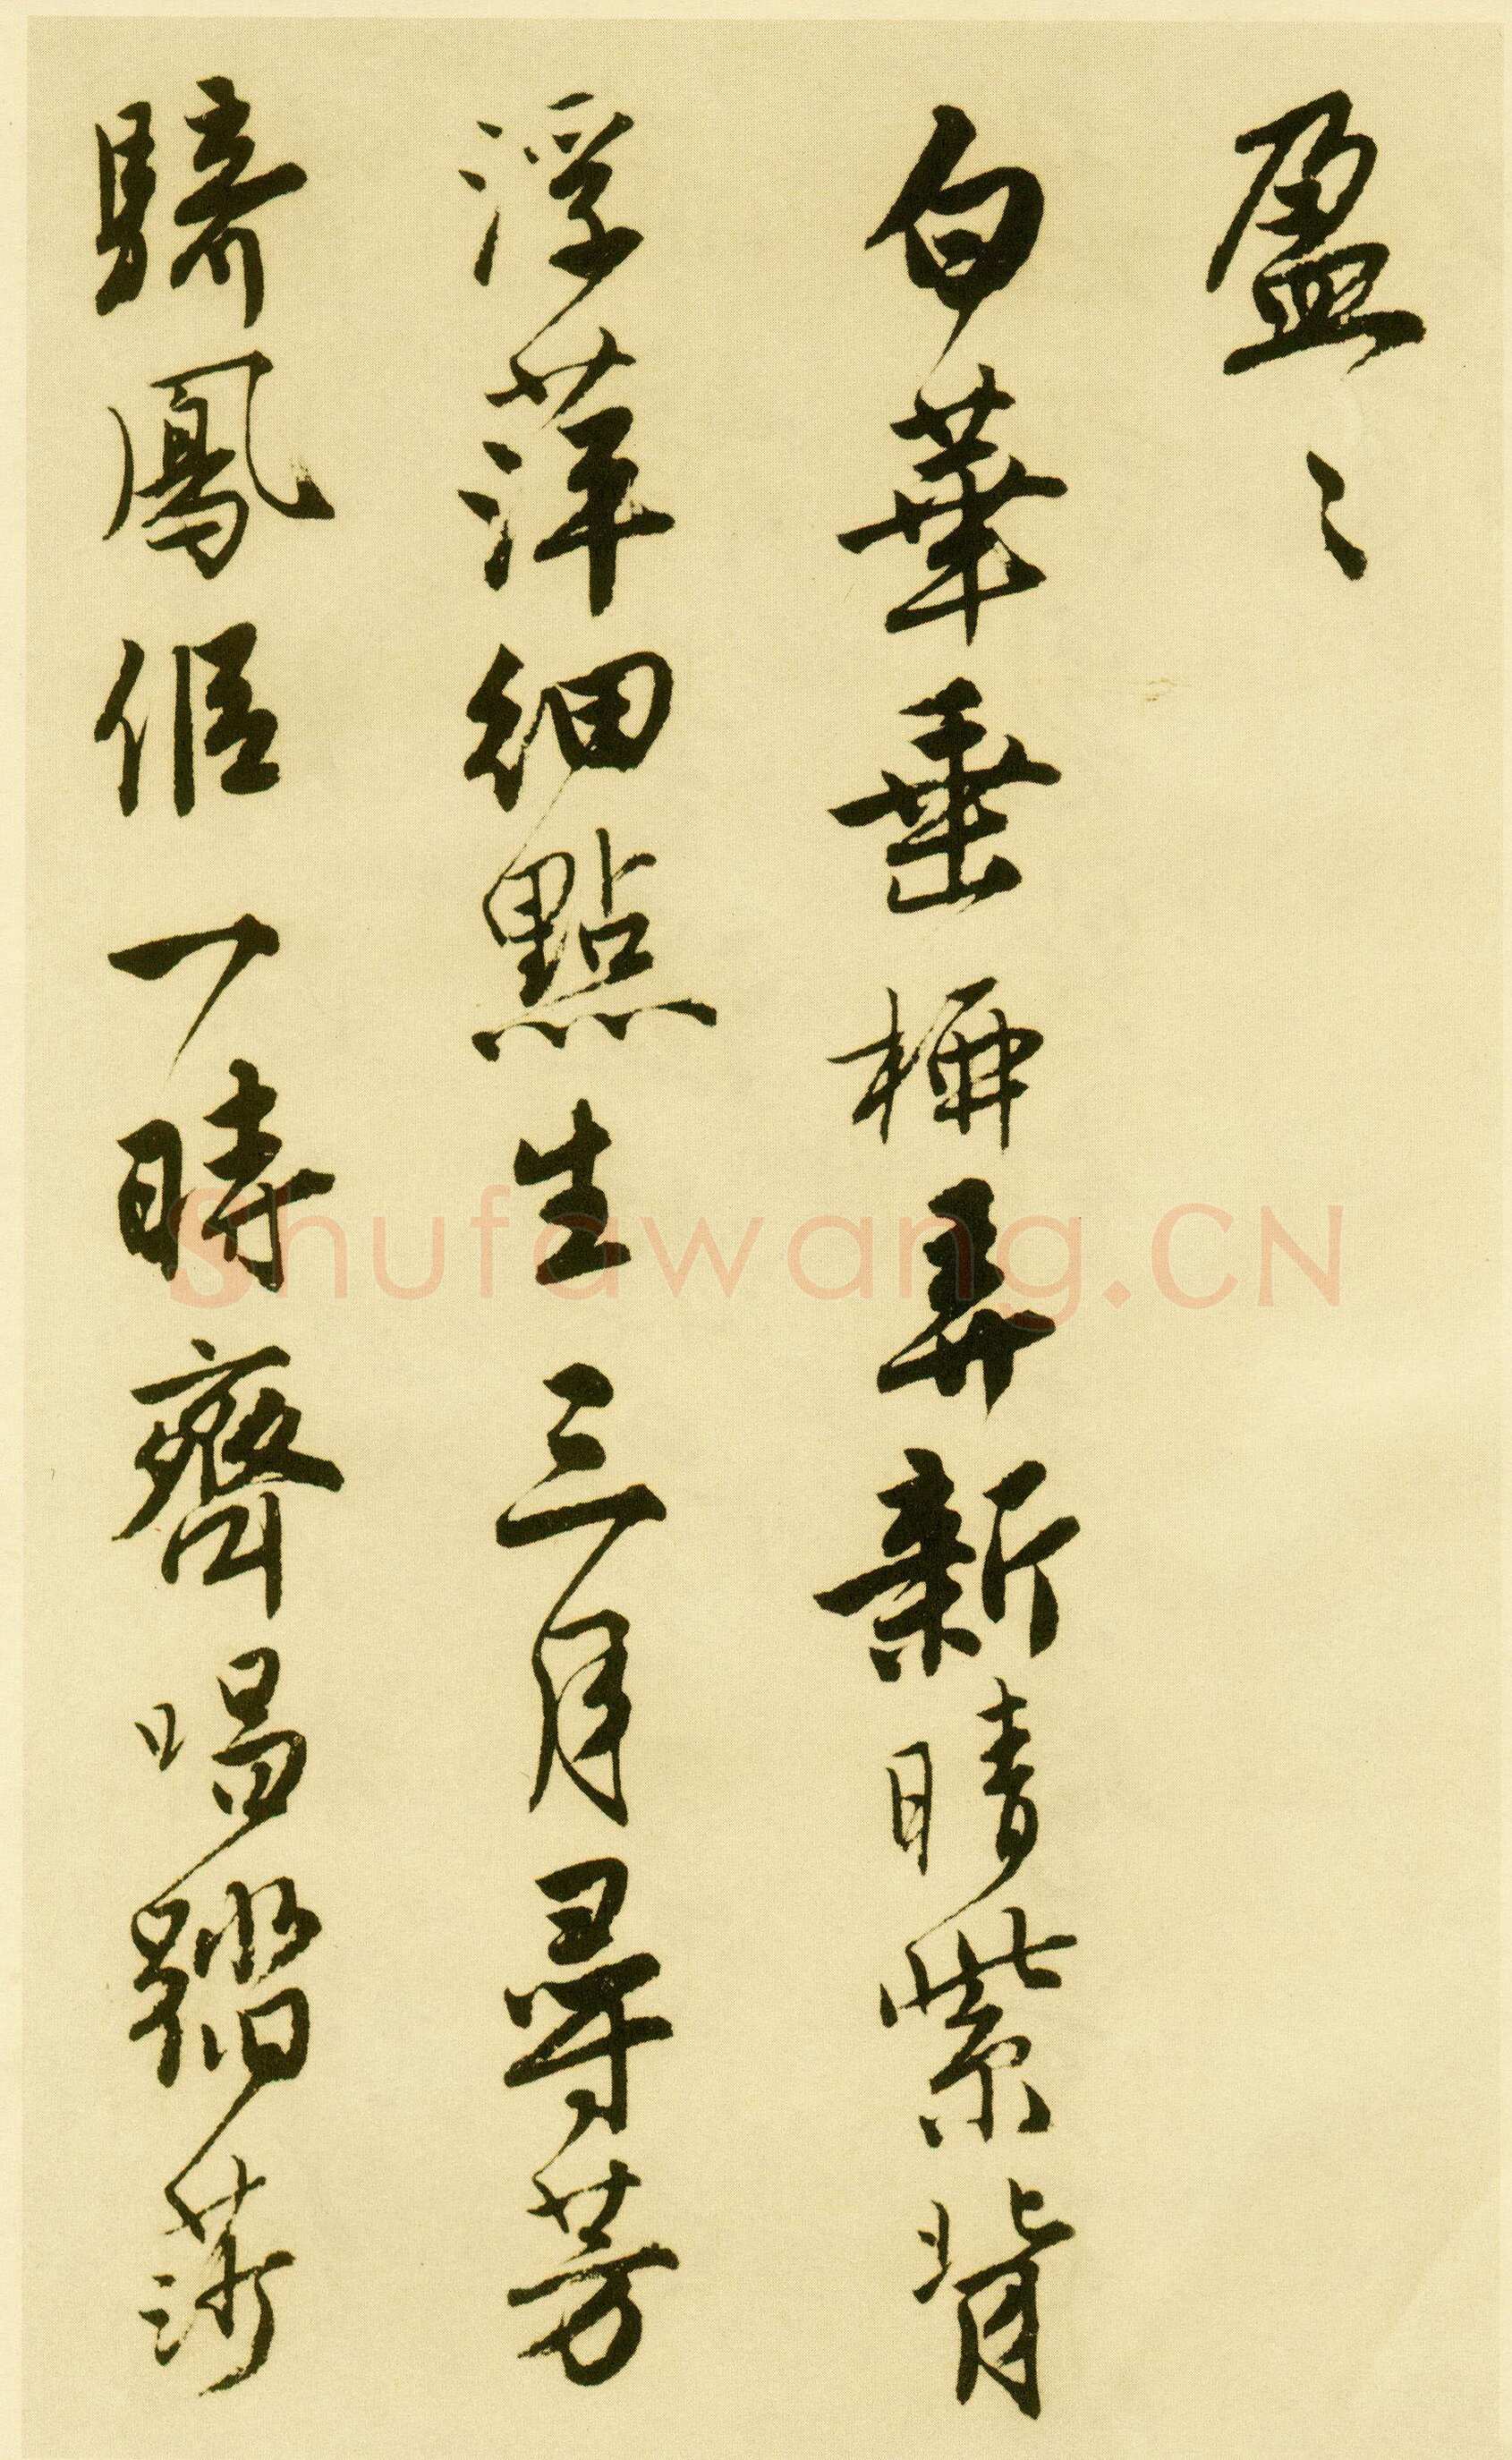 盈〻
白華垂桺弄新晴紫背
浮萍細點生三月尋芳
騎鳳侶一時齊唱踏莎
Shufawang.CN